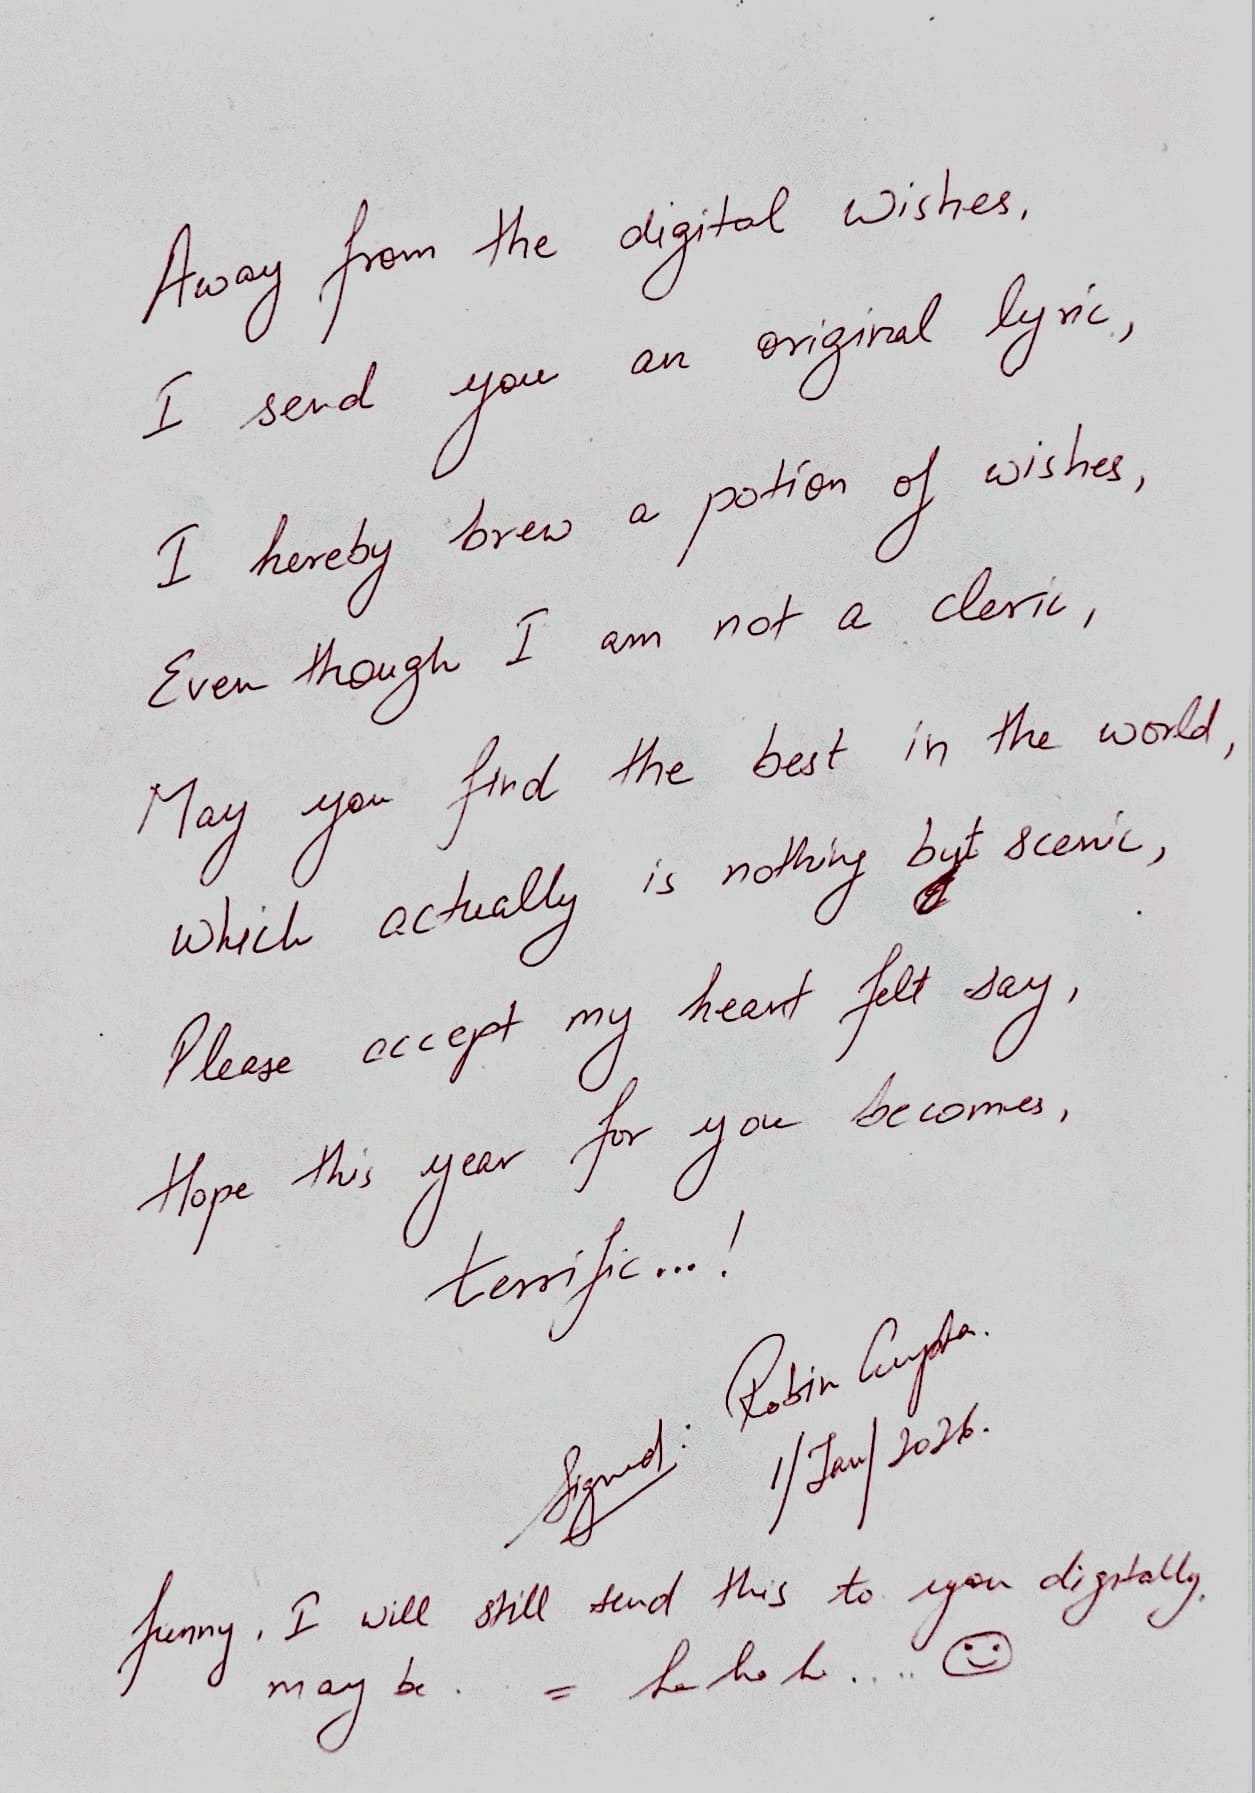 Away from the digital wishes,
I send you an original lyric,
I hereby brew a potion of wishes,
Even though I am not a cleric,
May you find the best in the world,
Which actually is nothing but scenic,
Please accept my heart felt say,
Hope this year for you becomes,
terrific...!
Robin Gupta.
Signed: 1/Jan/2026.
funny, I will still send this to you digitally.
may be. = ha ha h..... ☺